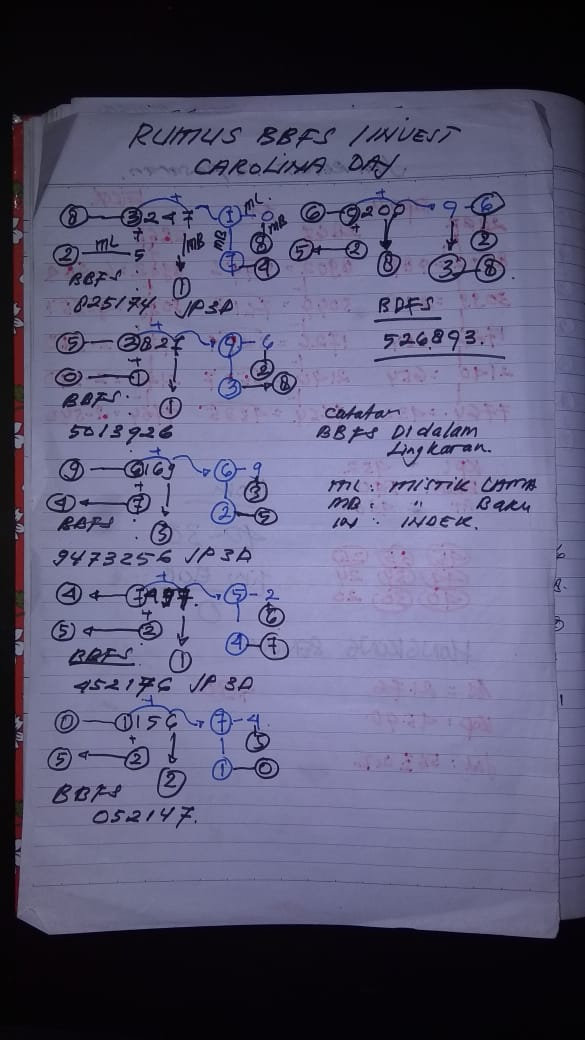 RUMUS BBFS 1 INVEST
CAROLINA DAY
+
8 3247 1 ML 0
2 ML 5 MB MB 8
1 7 9
BBFS:
825174 JP 3D
+
6 9200 9-6
5 2 8 2
3 8
BBFS
526893.
+
5 3827 9-6
0 1 2
1 3 8
BBFS:
5013926
Catatan
BBFS Didalam
Lingkaran.
ML: MISTIK LAMA
MB: " Baru
IN: INDEK.
+
9 6169 6-9
4 7 3
3 2 5
BBFS:
9473256 JP 3D
+
4 5-2
5 2 6
1 4 7
BBFS:
452176 JP 3D
+
0 1156 7-4
5 2 5
2 1 0
BBFS
052147.